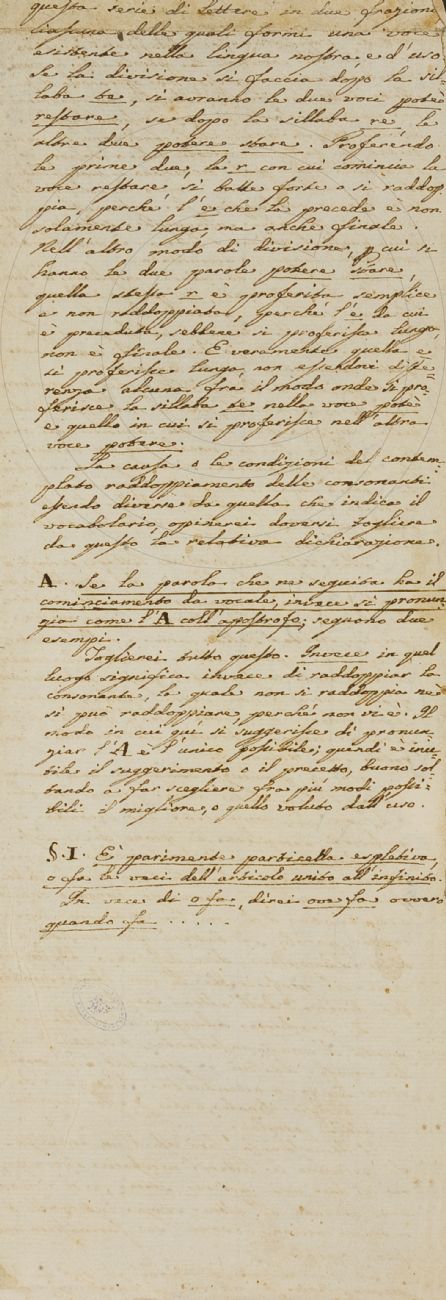 questa serie di lettere in due frazioni
ciascuna delle quali formi una voce
esistente nella lingua nostra, e d'uso.
Se la divisione si faccia dopo la sil
laba te, si avranno le due voci potè
restare, se dopo la sillaba re le
altre due potere stare. Proferendo
le prime due, la r con cui comincia la
voce restare si batte forte o si raddop
pia, perchè l'e che la precede è non
solamente lunga, ma anche finale.
Nell'altro modo di divisione, p cui si
hanno le due parole potere stare,
quella stessa r è proferita semplice
e non raddoppiata, perchè l'e da cui
è preceduta, sebbene si proferisca lunga,
non è finale. E veramente quella e
si proferisce lunga, non essendovi diffe=
renza alcuna fra il modo onde si pro=
ferisce la sillaba te nella voce potè
e quello in cui si proferisce nell'altra
voce potere.
La causa o le condizioni del contem=
plato raddoppiamento delle consonanti
essendo diverse da quella che indica il
vocabolario, opinerei doversi togliere
da questo la relativa dichiarazione.
A. Se la parola che ne seguita ha il
cominciamento da vocale, invece si pronun
zia come l'A coll'apostrofo; seguono due
esempi.
Toglierei tutto questo. Invece in quel
luogo significa invece di raddoppiar la
consonante, la quale non si raddoppia nè
si può raddoppiare, perchè non vi è. Il
modo in cui qui si suggerisce di pronun
ziar l'A è l'unico possibile; quindi è inu=
tile il suggerimento o il precetto, buono sol=
tando a far scegliere fra più modi possi=
bili il migliore, o quello voluto dall'uso.
§.I. È parimente particella espletiva,
o fa le veci dell'articolo unito all'infinito.
In vece di o fa, direi ove fa ovvero
quando fa . . . . .